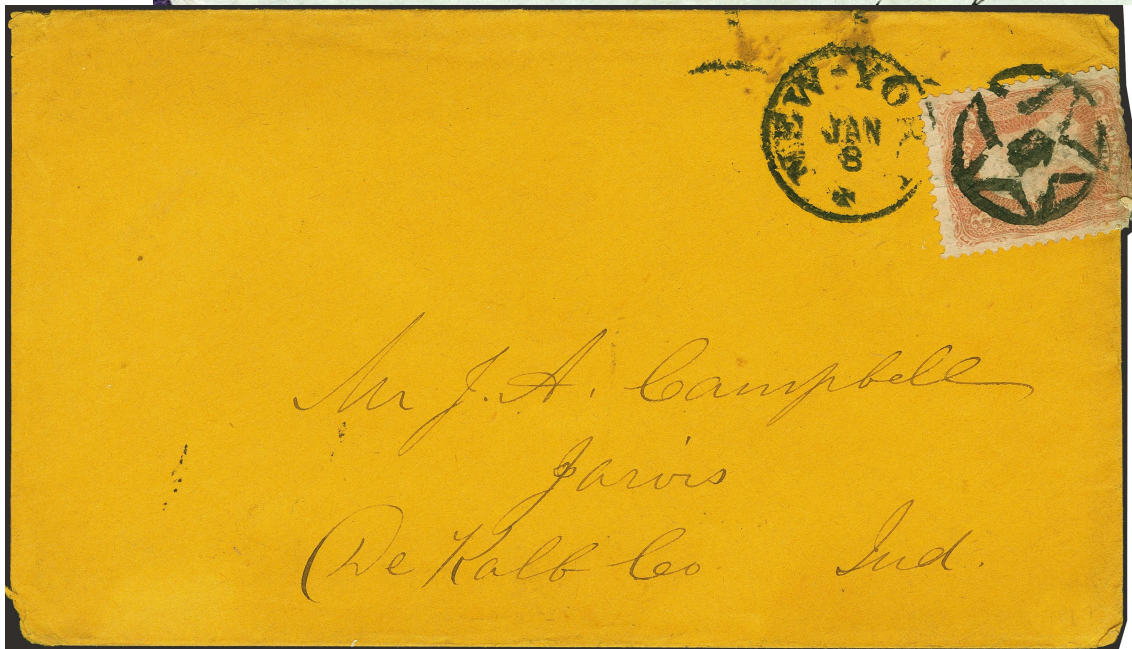 NEW-YOR
JAN
8
Mr J. A. Campbell
Jarvis
De Kalb Co Ind.